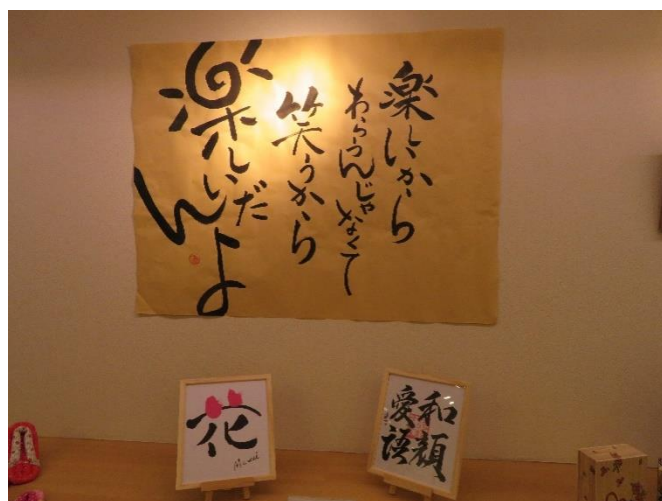 楽しいから
わらうんじゃなくて
笑うから
楽しいんだよ
花
和顔
愛語